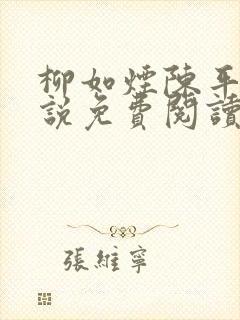 柳如煙陳平
說免費閱讀
張維寧